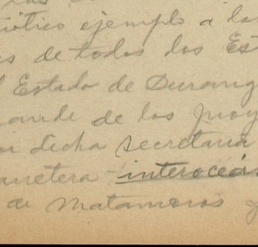 iótico ejemplo a los
es de todos los Es
l Estado de Durang
ande de los proy
or dicha secretaría
arretera interoceá
de Matamoros y